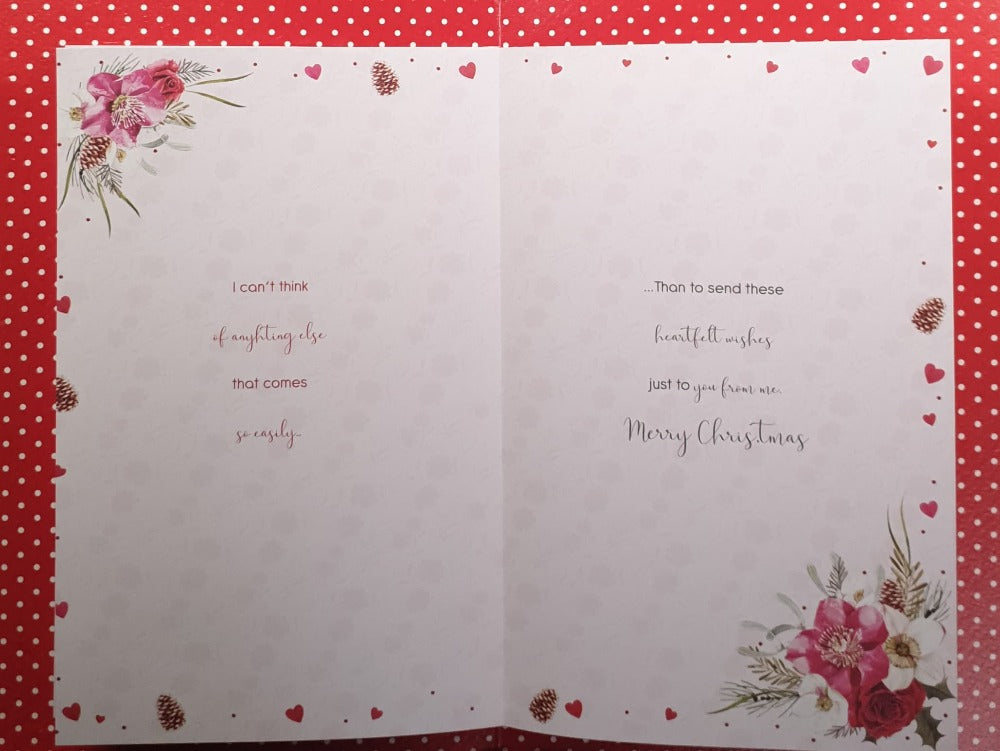 I can't think
of anyhting else
that comes
so easily...
...Than to send these
heartfelt wishes
just to you from me.
Merry Chris.tmas